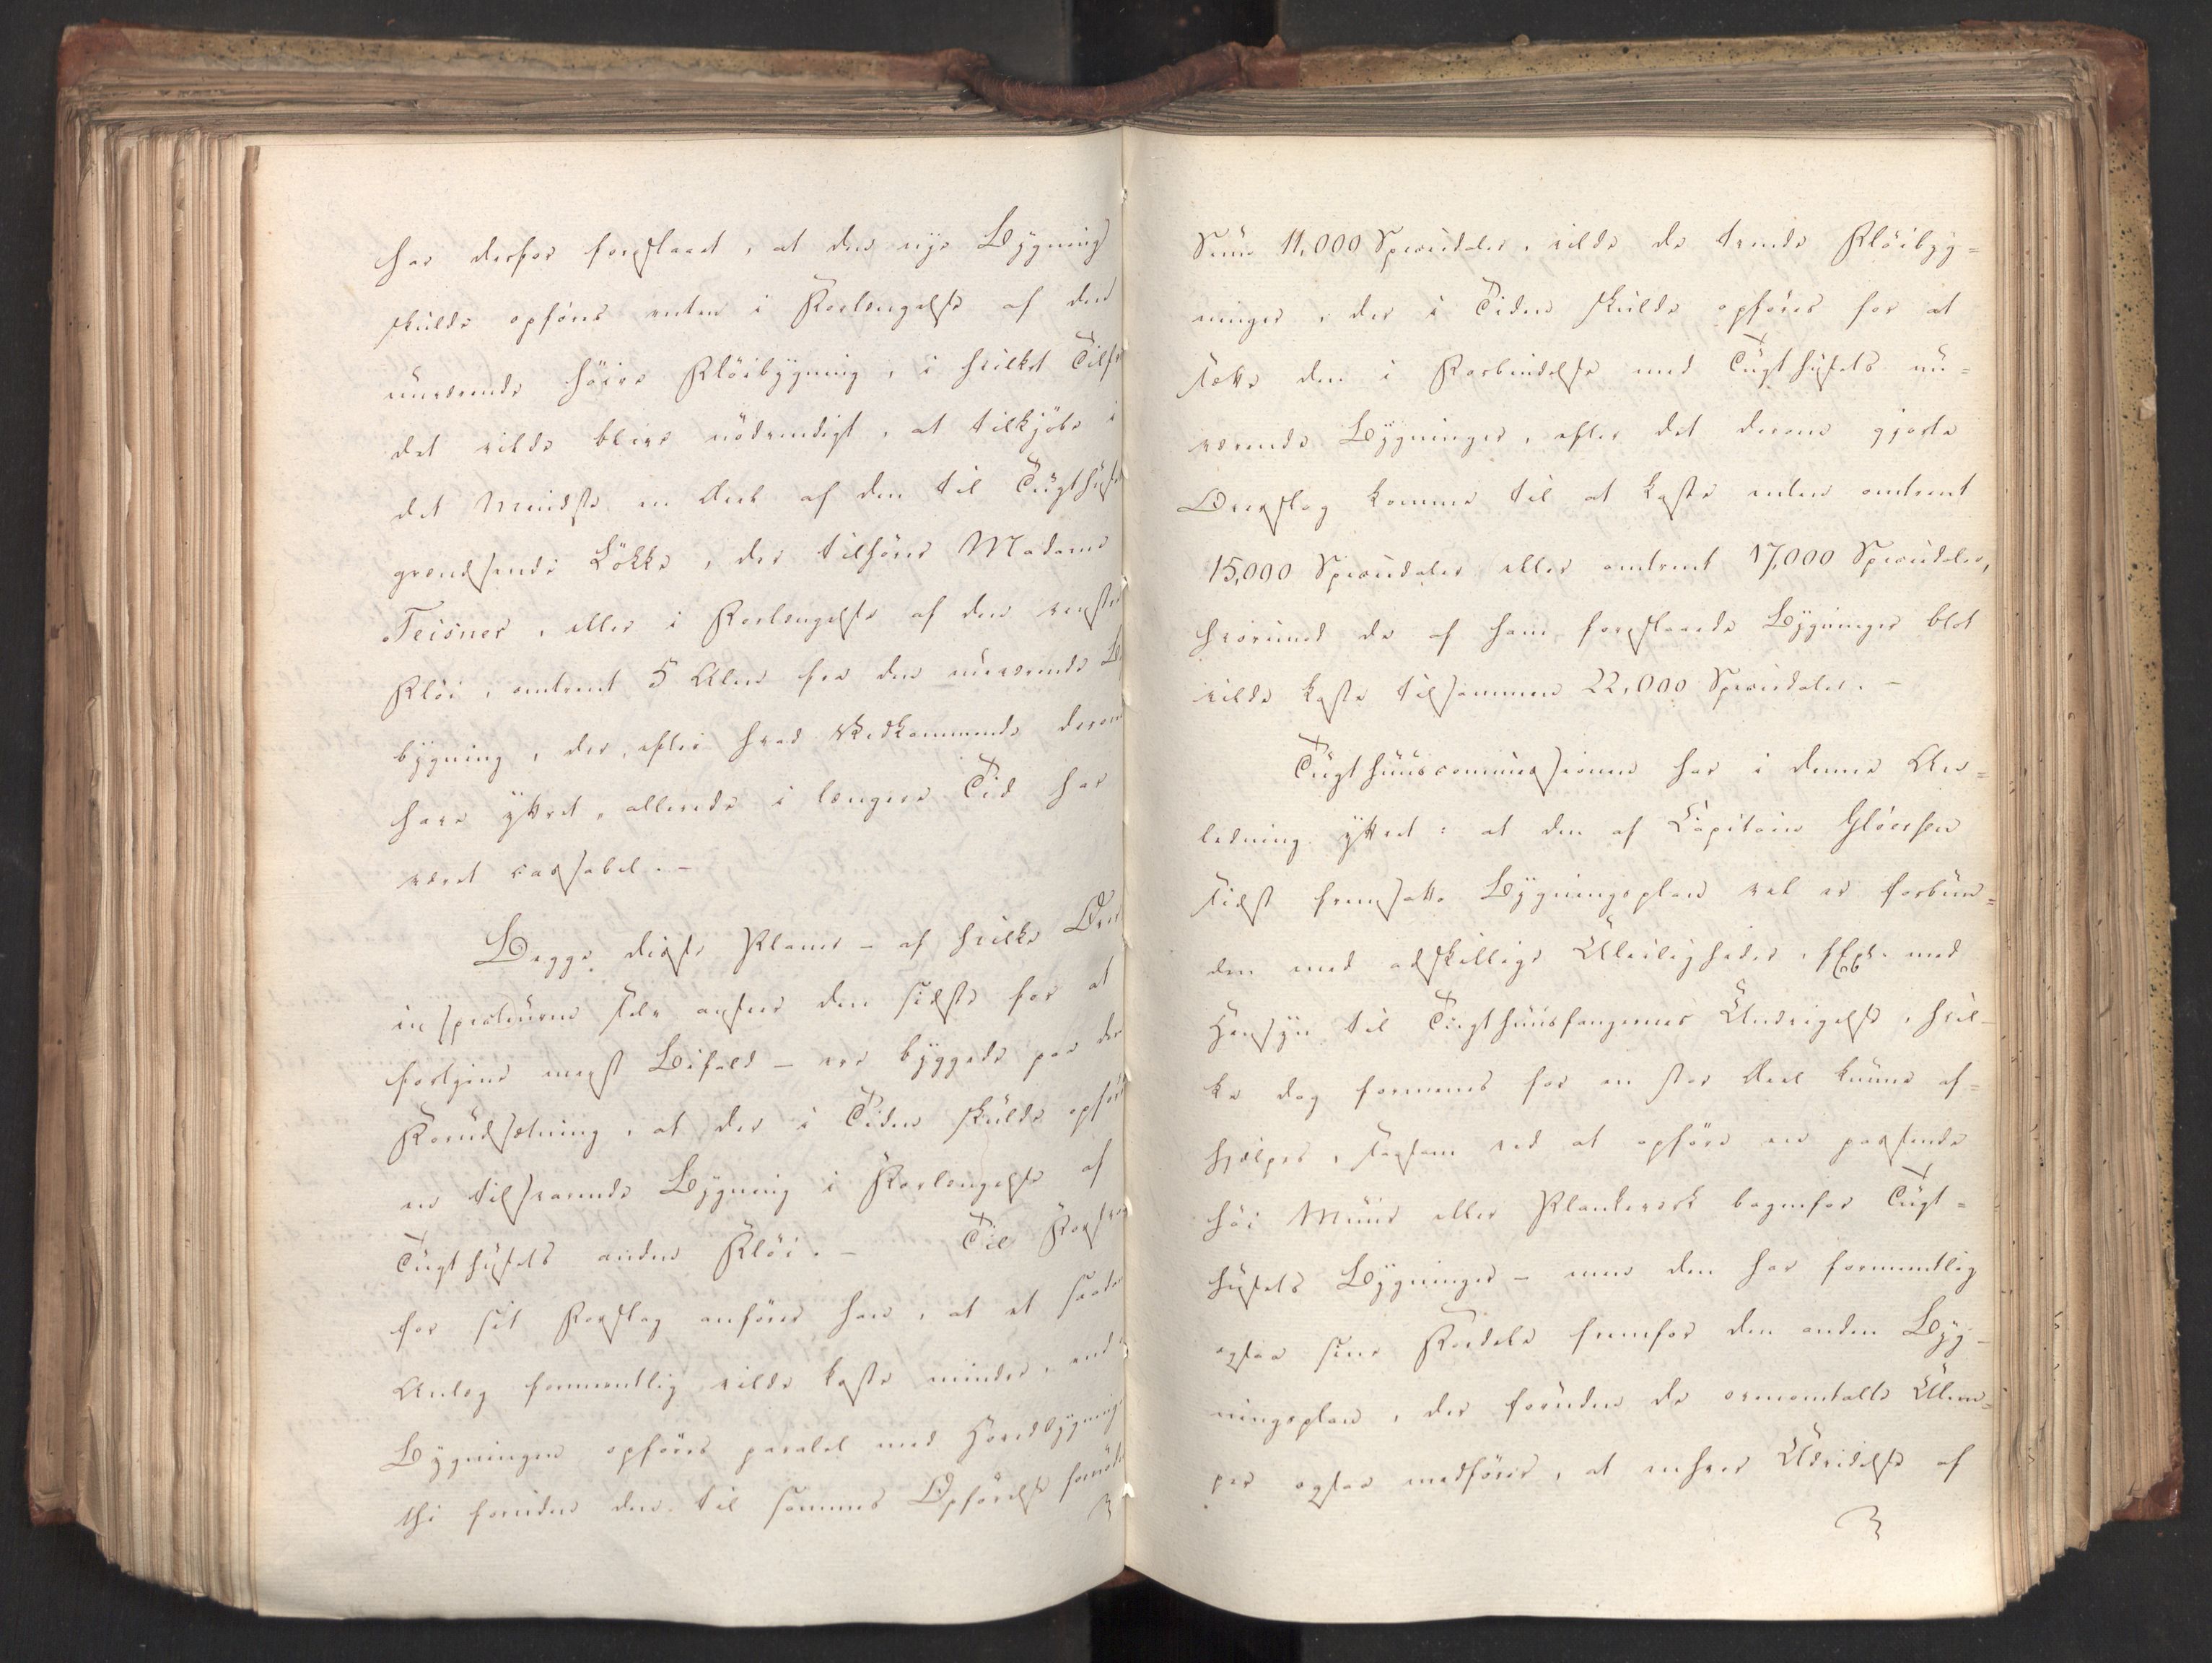 har derfor foreslaaet, at den nye Bygning
skulde opføres enten i Forlængelse af den
nuværende høire Fløibygning, i hvilket Tilfæ
det vilde blive nødvendigt, at tilkjøbe i
det mindste en Deel af den til Tugthuset
grændsende Løkke, der tilhører Madame
Teisner, eller i Forlængelse af den venstre
Fløi, omtrent 5 Alen fra den nuværende
bygning, der, efter hvad Vedkommende derom
have yttret, allerede i længere Tid har
været cassabel. -
Begge disse Planer - af hvilke
inspecteurens selv ansees den sidste for at
fortjene meest Bifald - ere byggede paa den
Forudsætning, at der i Tiden skulde opføres
en tilsvarende Bygning i Forlængelse af
Tugthusets anden Fløi. - Til Forsvar
for sit Forslag anfører han, at et saadan
Anlæg formeentlig vilde koste mindre, end
Bygningen opføres paralel med Hovedbygning
thi foruden den til sammes Opførelse fornødn
Sum 11,000 Speciedaler, vilde de tvende Fløibyg=
ninger, der i Tiden skulde opføres for at
sætte den i Forbindelse med Tugthusets nu=
værende Bygninger, efter det derom gjorte
Overslag komme til at koste enten omtrent
15,000 Speciedaler eller omtrent 17,000 Speciedaler,
hvorimod de af ham foreslaaede Bygninger blot
vilde koste tilsammen 22,000 Speciedaler. -
Tugthuuscommissionen har i denne An=
ledning yttret: at den af Capitain Gløersen
sidst fremsatte Bygningsplan vel er forbun=
den med adskillige Uleiligheder, f Ex. med
Hensyn til Tugthuusfangernes Undvigelse, hvil-
ke dog formenes for en stor Deel kunne af=
hjælpes, saasom ved at opføre en passende
høi Muur eller Plankeværk bagenfor Tugt=
husets Bygninger - men den har formeentlig
ogsaa sine Fordele fremfor den anden Byg-
ningsplan, der foruden de ovenomtalte Ulem=
per ogsaa medfører, at enhver Udvidelse af